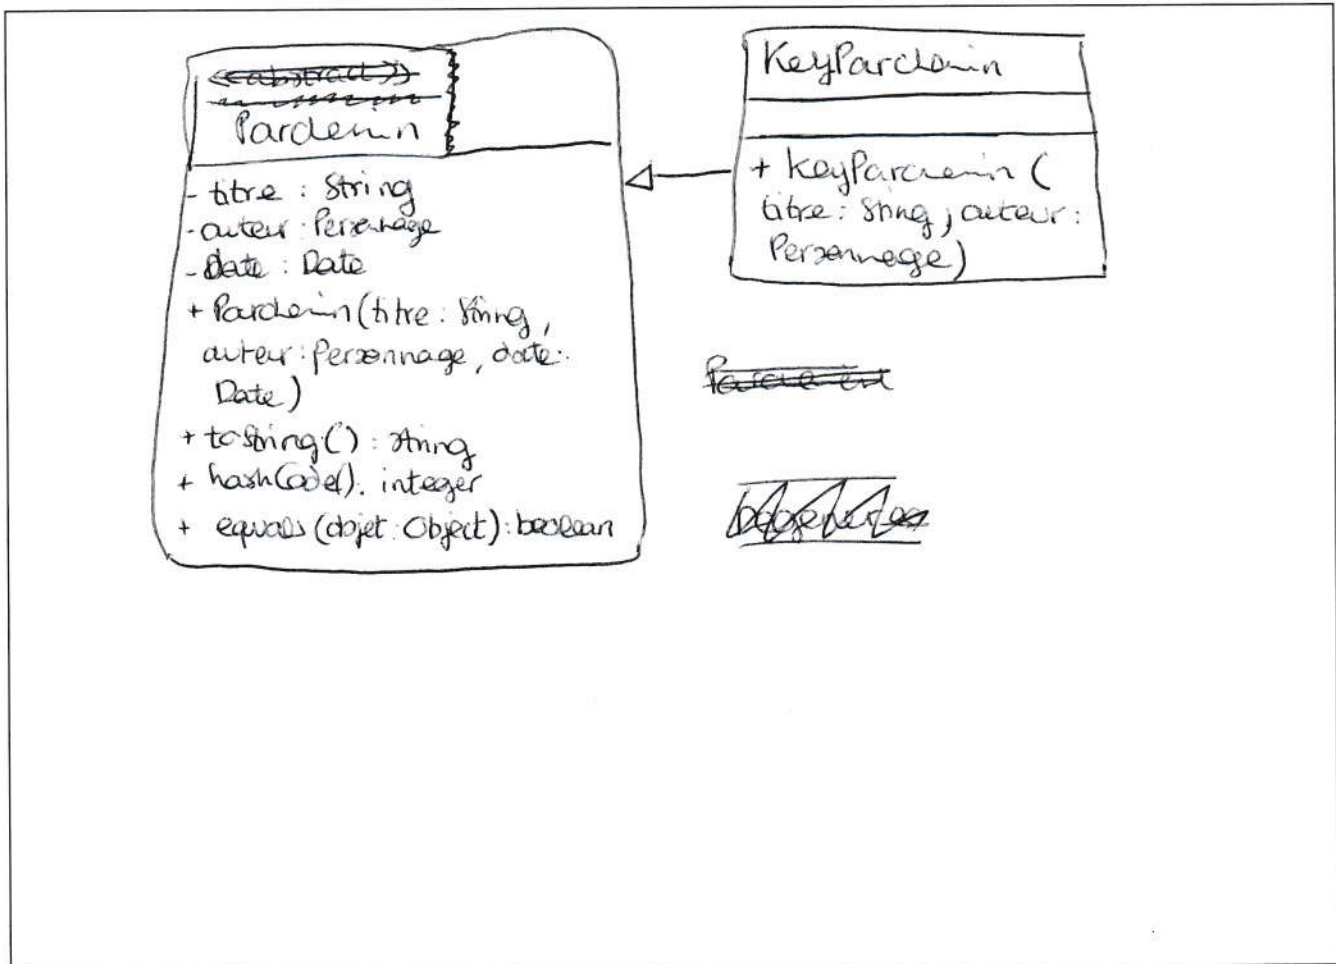 <<abstract>>
Parchemin
- titre : String
- auteur : Personnage
- Date : Date
+ Parchemin(titre : String,
auteur : Personnage, date :
Date)
+ toString() : String
+ hashCode() : integer
+ equals(objet : Object) : boolean
KeyParchemin
+ KeyParchemin(
titre : String, auteur :
Personnage)